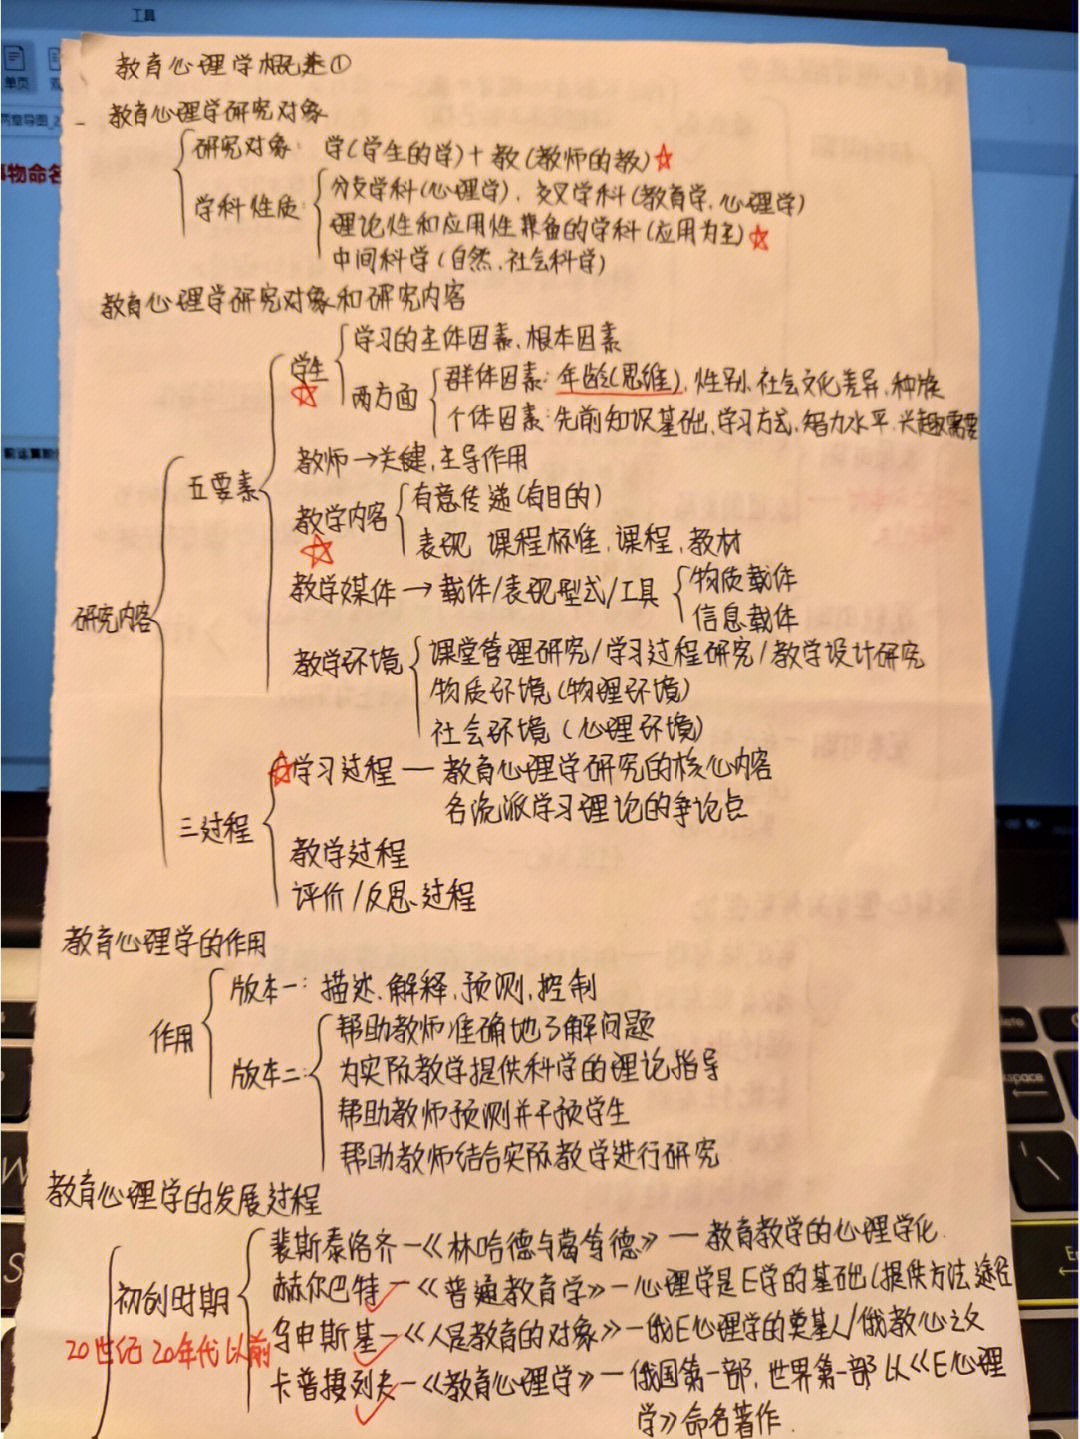 工具
单页
教育心理学概述①
教育心理学研究对象
研究对象: 学(学生的学)+教(教师的教)☆
学科性质: 分支学科(心理学)、交叉学科(教育学、心理学)
理论性和应用性兼备的学科(应用为主)☆
中间科学(自然、社会科学)
教育心理学研究对象和研究内容
研究内容
五要素
学生☆
学习的主体因素、根本因素
两方面
群体因素: 年龄(思维)、性别、社会文化差异、种族
个体因素: 先前知识基础、学习方式、智力水平、兴趣需要
教师→关键、主导作用
教学内容☆
有意传递(有目的)
表现 课程标准、课程、教材
教学媒体→载体/表现型式/工具
物质载体
信息载体
教学环境
课堂管理研究/学习过程研究/教学设计研究
物质环境(物理环境)
社会环境(心理环境)
三过程
☆学习过程—教育心理学研究的核心内容
各流派学习理论的争论点
教学过程
评价/反思过程
教育心理学的作用
作用
版本一: 描述、解释、预测、控制
版本二:
帮助教师准确地了解问题
为实际教学提供科学的理论指导
帮助教师预测并干预学生
帮助教师结合实际教学进行研究
教育心理学的发展过程
初创时期
20世纪20年代以前
裴斯泰洛齐—《林哈德与葛笃德》—教育教学的心理学化.
赫尔巴特—《普通教育学》—心理学是E学的基础(提供方法、途径
乌申斯基—《人是教育的对象》—俄E心理学的奠基人/俄教心之父
卡普捷列夫—《教育心理学》—俄国第一部,世界第一部以《E心理
学》命名著作.